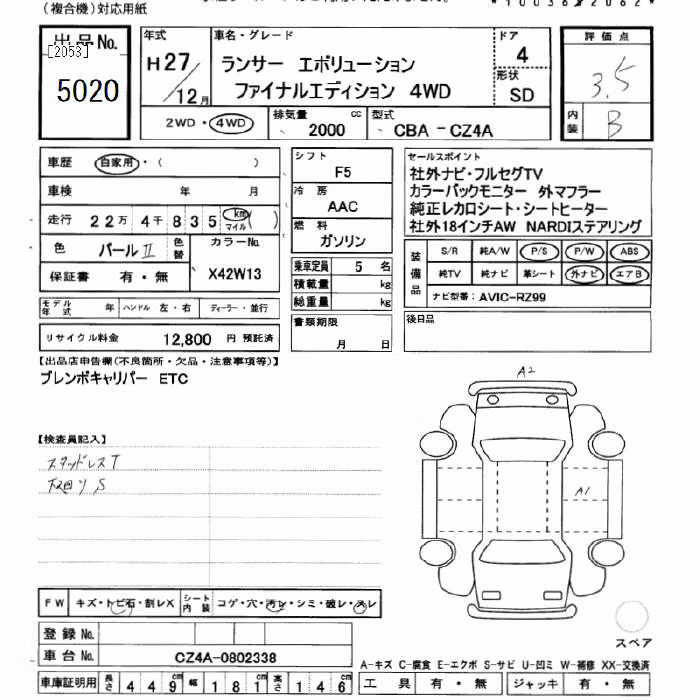 (複合機)対応用紙
出品No.
[2053]
5020
年式
H27/12月
車名・グレード
ランサー エボリューション
ファイナルエディション 4WD
ドア
4
形状
SD
評価点
3.5
内装
B
2WD・4WD
排気量
2000 cc
型式
CBA-CZ4A
車歴 自家用・( )
車検 年 月
走行 22万 4千 835 km マイル
色 パールⅡ 色替
カラーNo.
X42W13
保証書 有・無
モデル年式 年 ハンドル 左・右 ディーラー・並行
リサイクル料金 12,800 円 預託済
シフト
F5
冷房
AAC
燃料
ガソリン
乗車定員 5 名
積載量 kg
総重量 kg
書類期限
月 日
セールスポイント
社外ナビ・フルセグTV
カラーバックモニター 外マフラー
純正レカロシート・シートヒーター
社外18インチAW NARDIステアリング
装備品
S/R 純A/W P/S P/W ABS
純TV 純ナビ 革シート 外ナビ エアB
ナビ型番: AVIC-RZ99
後日品
【出品店申告欄(不良箇所・欠品・注意事項等)】
ブレンボキャリパー ETC
【検査員記入】
スタッドレスT
下廻りS
A2
A1
スペア
FW キズ・トビ石・割レX シート内装 コゲ・穴・汚レ・シミ・破レ・スレ
登録No.
車台No. CZ4A-0802338
車庫証明用 長さ 449cm 幅 181cm 高さ 146
A-キズ C-腐食 E-エクボ S-サビ U-凹ミ W-補修 XX-交換済
工具 有・無 ジャッキ 有・無